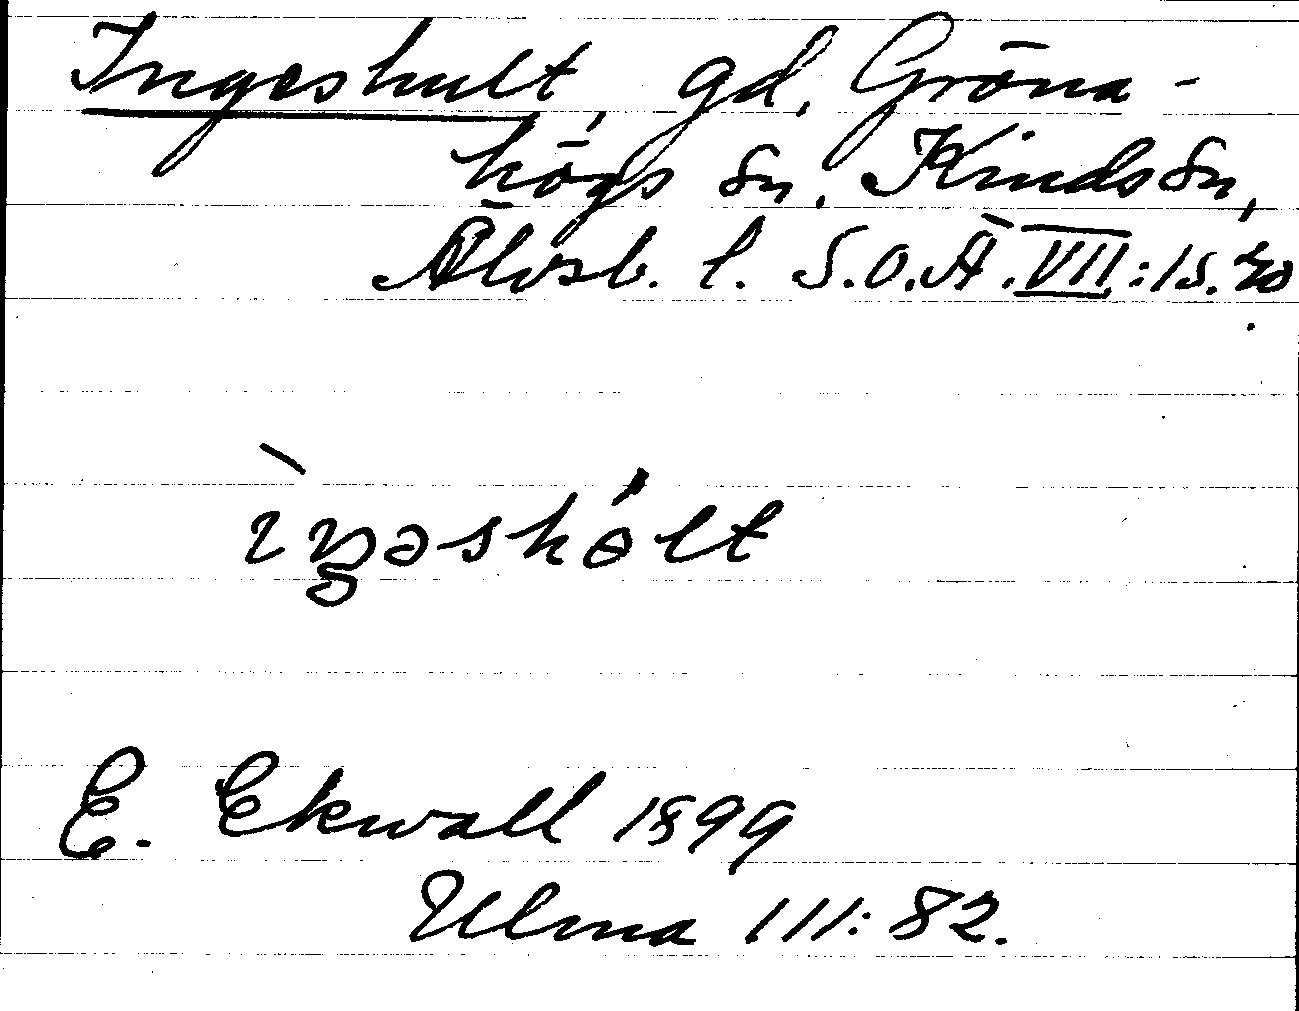 Ingeshult, gd, Gröna-
högs sn. Kinds hd,
Älvsb. l. S.O.Ä. VII:1 s. 20
ìŋəshólt
E. Ekwall 1899
Ulma 111:82.